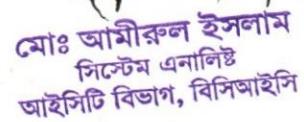 মোঃ আমীরুল ইসলাম
সিস্টেম এনালিষ্ট
আইসিটি বিভাগ, বিসিআইসি